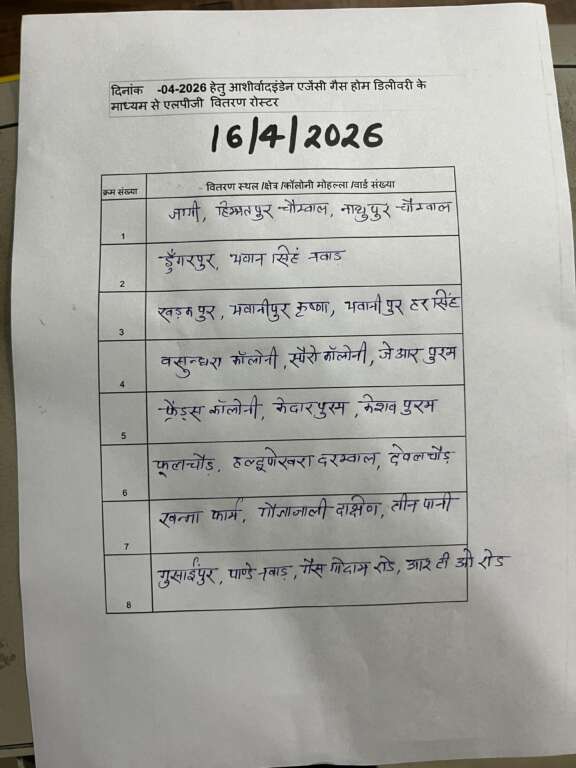 दिनांक -04-2026 हेतु आशीर्वादइंडेन एजेंसी गैस होम डिलीवरी के
माध्यम से एलपीजी वितरण रोस्टर
16/4/2026
क्रम संख्या वितरण स्थल /क्षेत्र /कॉलोनी मोहल्ला /वार्ड संख्या
1 जागी, हिम्मतपुर चौम्वाल, नाथुपुर चौम्वाल
2 डुँगरपुर, भवान सिंह नवाड़
3 खड़कपुर, भवानीपुर कृष्णा, भवानीपुर हर सिंह
4 वसुन्धरा कॉलोनी, स्पैरो कॉलोनी, जे आर पुरम
5 फ्रेंड्स कॉलोनी, केदारपुरम, केशव पुरम
6 फूलचौड़, दरम्वाल, देवलचौड़
7 खन्ना फार्म, गौजाजाली दक्षिण, तीन पानी
8 गुसाईंपुर, पाण्डे नवाड़, गैस गोदाम रोड, आर टी ओ रोड